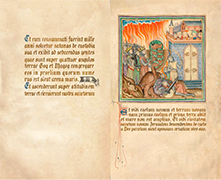 Et cum consummati fuerint mille
anni solvetur satanas de custodia
sua et exibit ad seducendas gentes
que sunt super quattuor angulos
terre Gog et Magog congregare
eos in prelium quorum numerus
est sicut arena maris
Et ascenderunt super altitudinem
terre et circuierunt castra sanctorum
vidi caelum novum et terram novam
nam primus caelum et prima terra abiit
et mare non est amplius. Et vidi civitatem
sanctam novam Jerusalem descendentem de caelo
a Deo paratam sicut sponsam ornatam viro suo.